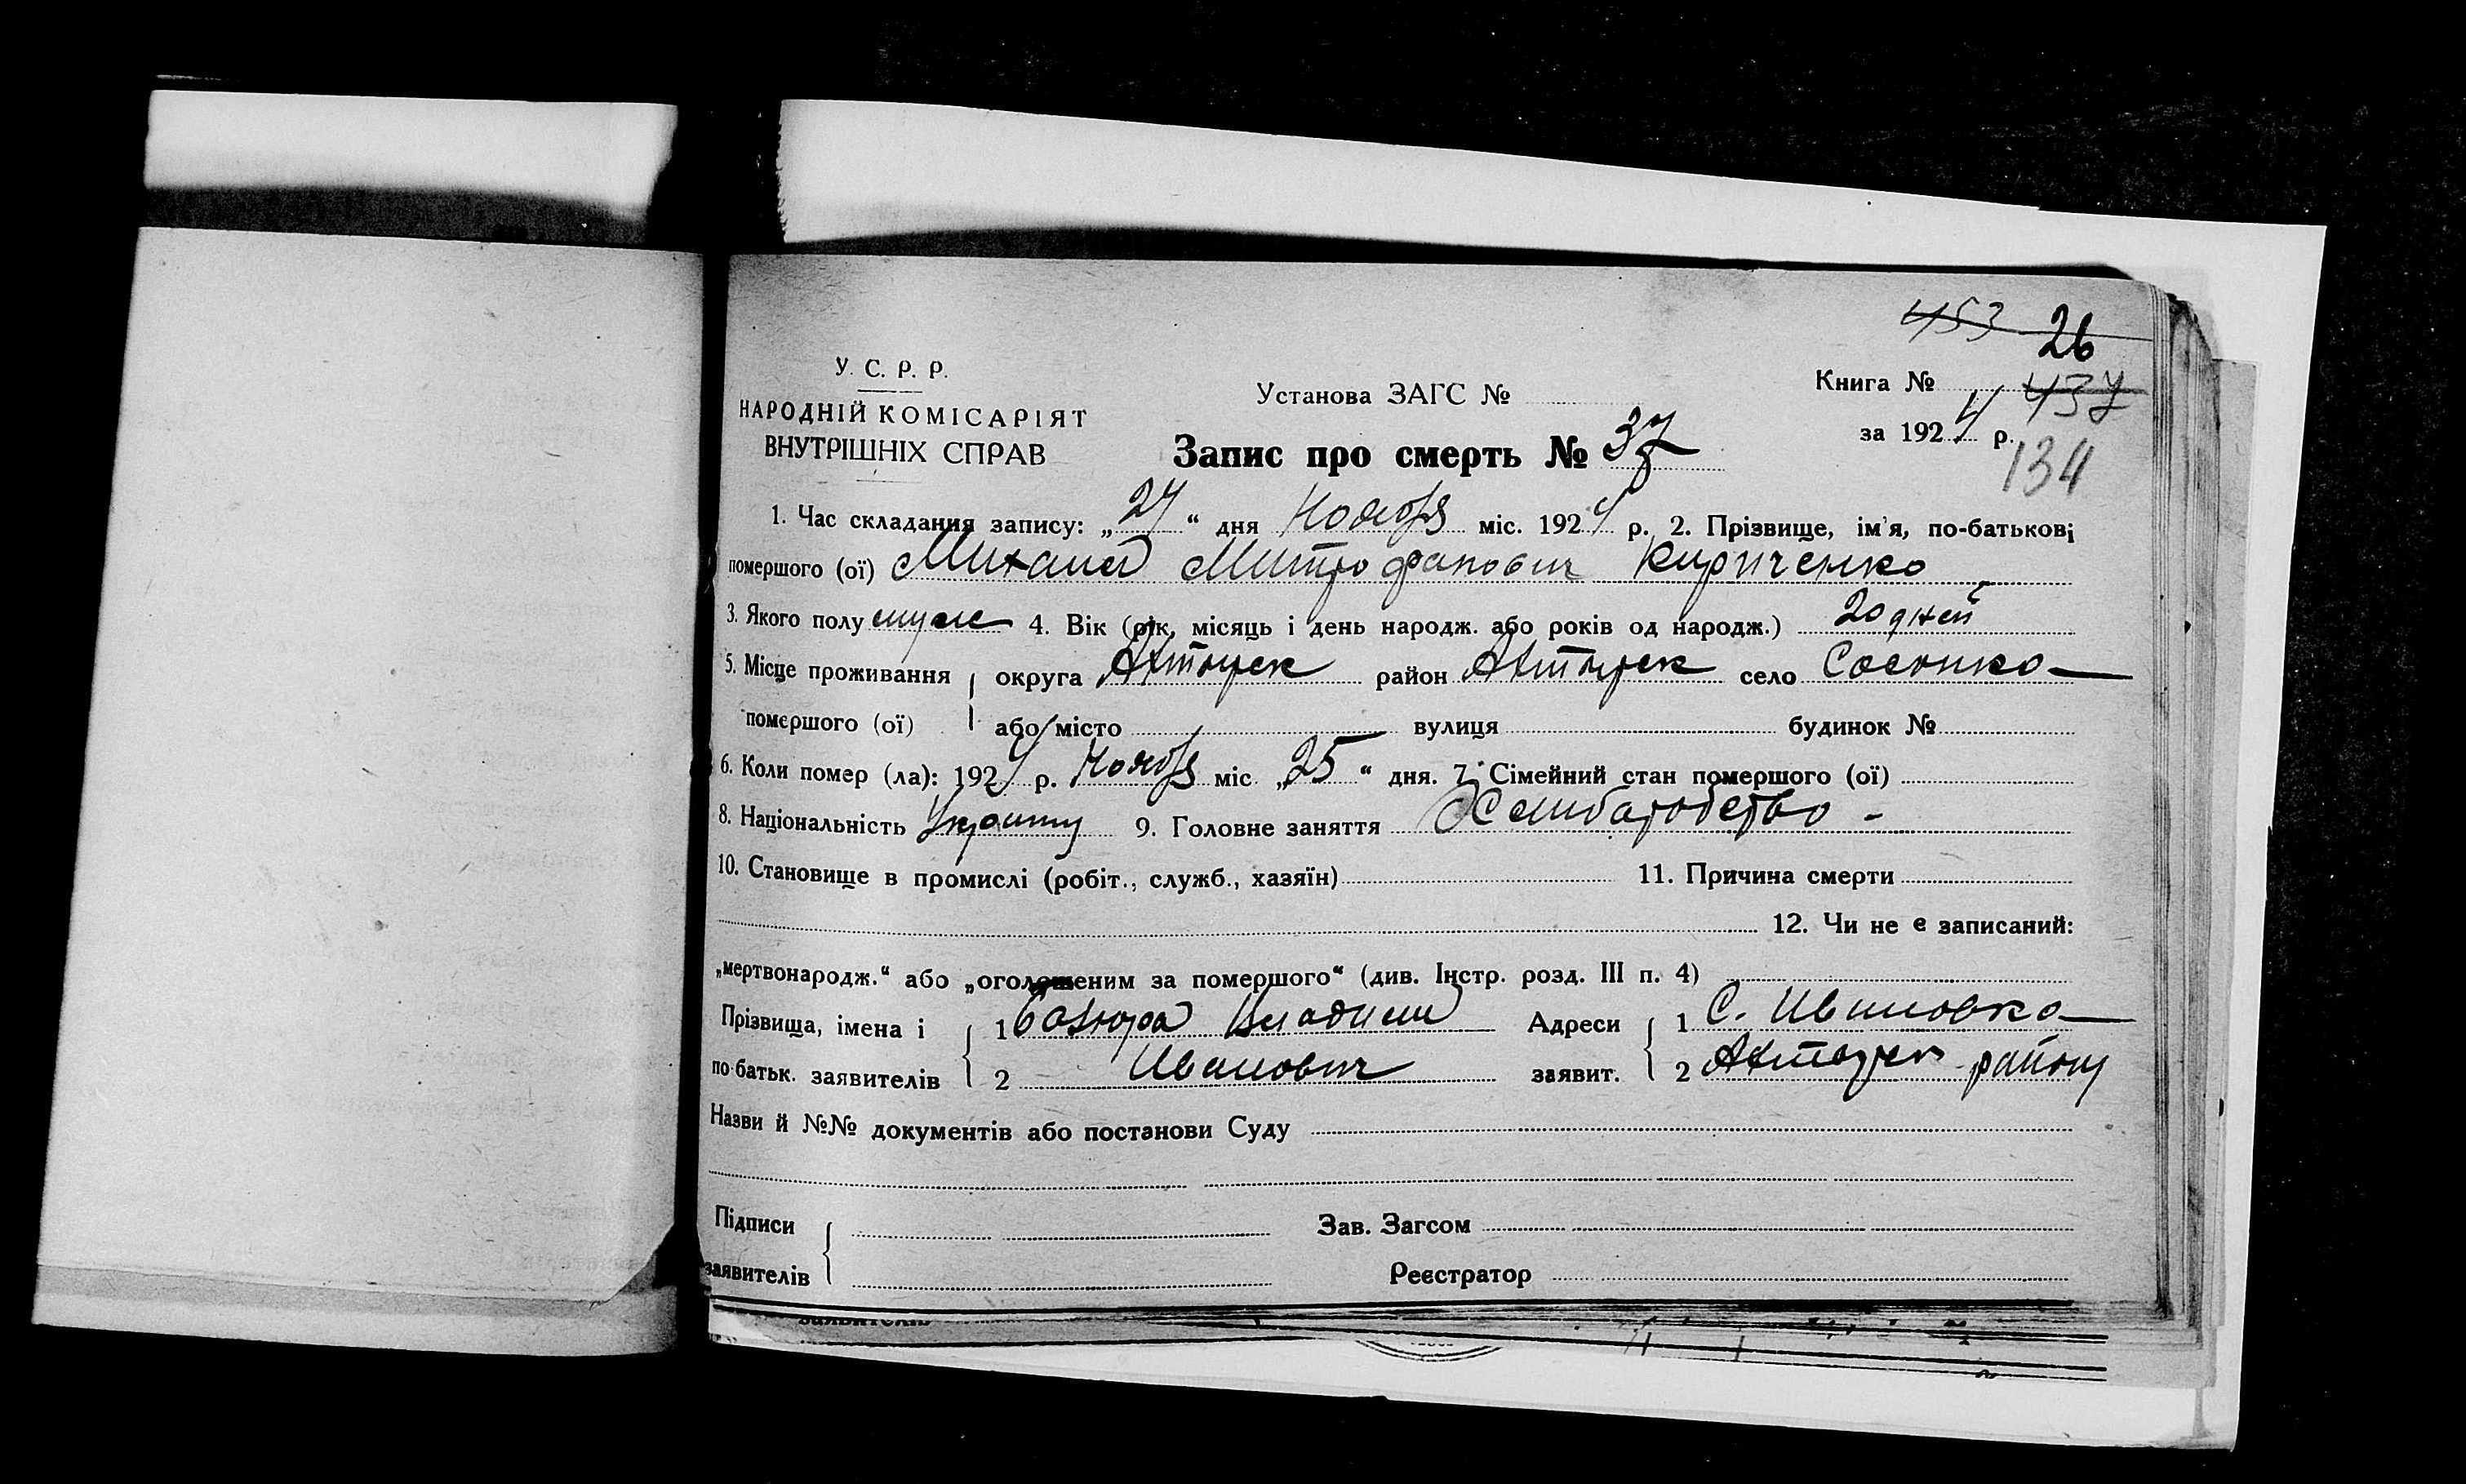 453 26
У. С. Р. Р.
Книга № 437
Установа ЗАГС №
НАРОДНІЙ КОМІСАРІЯТ
за 1924 р.
ВНУТРІШНІХ СПРАВ
Запис про смерть № 37
134
1. Час складання запису: „27“ дня Ноября міс. 1924 р. 2. Прізвище, ім'я, по-батькові
помершого (ої) Михаил Митрофанович Кириченко
3. Якого полу муж 4. Вік (рік, місяць і день народж. або років од народж.) 20 дней
5. Місце проживання округа Ахтырск район Ахтырск село Сосонка
помершого (ої) або місто вулиця будинок №
6. Коли помер (ла): 1924 р. Ноября міс „25“ дня. 7. Сімейний стан помершого (ої)
8. Національність 9. Головне заняття
10. Становище в промислі (робіт., служб., хазяїн) 11. Причина смерти
12. Чи не є записаний:
„мертвонародж.“ або „оголошеним за помершого“ (див. Інстр. розд. III п. 4)
Прізвища, імена і 1 Владим Адреси 1 С.
по-батьк. заявителів 2 Иванович заявит. 2 Ахтырск району
Назви й №№ документів або постанови Суду
Підписи Зав. Загсом
заявителів Реєстратор
заявителів